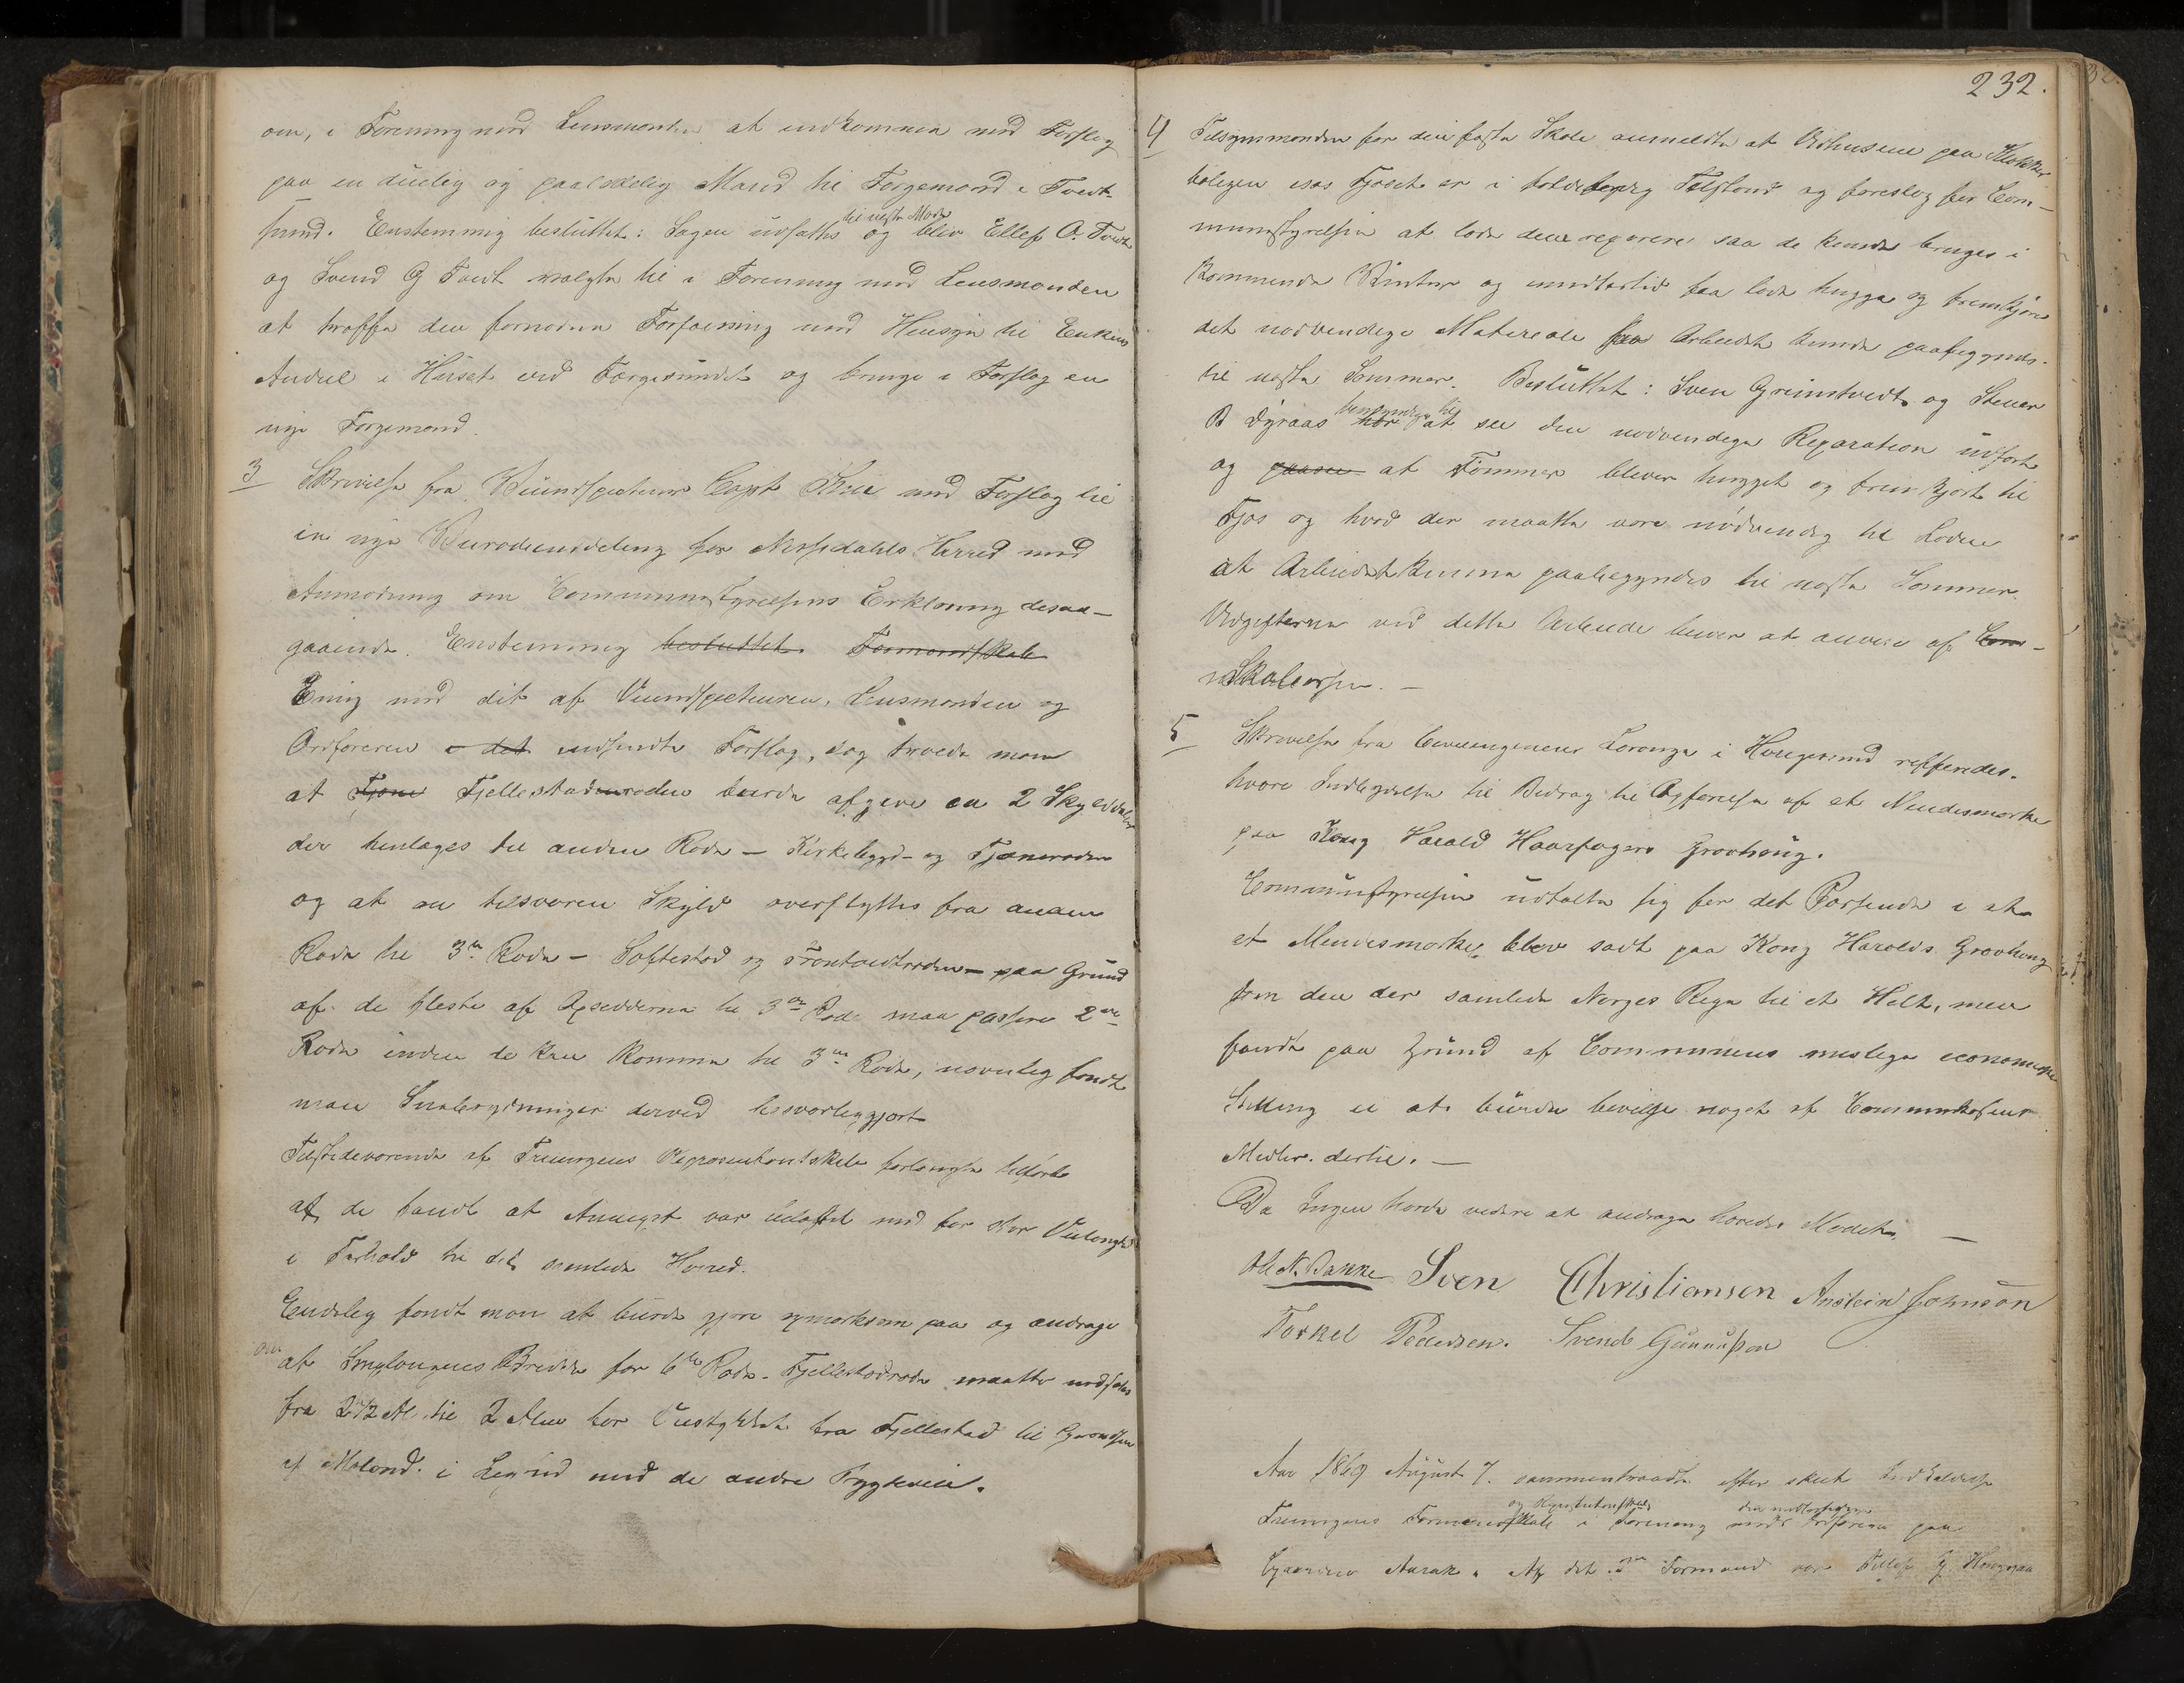 om, i Forening med Lensmanden at indkomme med Forslag
paa en duelig og paalidelig Mand til Færgemand i Tveit-
sund. Enstemmig besluttet: Sagen udsattes til næste Møde og blev Ellef O. Tveit
og Svend G Tveit valgte til i Forening med Lensmanden
at træffe den fornødne Forføining med Hensyn til Enkens
Andeel i Huset ved Færgesundet og bringe i Forslag en
nye Færgemand.
3 Skrivelse fra Veiinspecteur Capt Krie med Forslag til
en nye Veirodeinddeling for Nissedahls Herred med
Anmodning om Communestyrelsens Erklæring desan-
gaaende. Enstemmig besluttet. Formandskab
Enig med dit af Veiinspecteuren, Lensmanden og
Ordføreren i det indsendte Forslag, dog troede man
at Tjøne Fjellestadroden burde afgive ca 2 Skylddaler
der henlæges til anden Rode - Kirkebygd- og Tjøneroden
og at en tilsvaren Skyld overflyttes fra anden
Rode til 3die Rode - Saftestad og Trontveitroden - paa Grund
af de fleste af Opsidderne til 3die Rode maa passere 2den
Rode inden de kan komme til 3die Rode, navnlig fandt
man Snebrydninger derved besværliggjort
Tilstedeværende af Treungens Repræsentantskab forlangte tilført
at de fandt at Annexet var belastet med for stor Veilængde
i Forhold til det samlede Herred.
Endelig fandt man at burde gjøre opmærksom paa og andrage
om at Sneplougens Bredde for 6te Rode - Fjellestadrode maatte nedsættes
fra 2 1/2 Al. til 2 Alen for Veistykket fra Fjellestad til Grændsen
af Moland. i Lighed med de andre Bygdeveie.
232.
4 Tilsynsmanden for den faste Skole anmeldte at Udhusene paa Klokker
boligen især Fjøset er i høldefærdig Tilstand og foreslog for Com-
munestyrelsen at lade dem reparere saa de kunde bruges i
kommende Vinter og imidlertid faa lade hugge og fremkjøre
det nødvendige Materiale saa Arbeidet kunde paabegyndes
til næste Sommer. Besluttet: Sven Grimstvedt og Steener
B Dyraas bør bemyndiges til at see den nødvendige Reparation udført
og paasee at Tømmer bliver hugget og frem kjørt til
Fjøs og hvad der maatte være nødvendig til Laden
at Arbeidet kunne paabegyndes til næste Sommer.
Udgifterne ved dette Arbeide bliver at anvise af Com-
Skolecassen. -
5 Skrivelse fra Civilingenieur Lorange i Haugesund refferedes.
hvori Indbydelse til Bidrag til Opførelse af et Mindesmærke
paa Kong Harald Haarfagers Gravhaug.
Communestyrelsen udtalte sig for det Passende i at
et Mindesmærke blev sadt paa Kong Haralds Gravhaug
som den der samlede Norges Rige til et Helt, men
fandt paa Grund af Communens mislige economiske
Stilling ei at burde bevilge noget af Communekassens
Midler dertil. -
Da Ingen havde videre at andrage hævedes Mødet. -
Ole N. Bakke Sven Christiansen Anstein Johnson
Torkel Pedersen. Svend Gunnufsen
Aar 1869 August 7. sammentraadte efter skeet Indkaldelse
Treungens Formandskab og Repræsentantskab i Forening med den midlertidige Ordfører paa
Gaarden Aarak. Af det Formand var Tellef G Haugsjaa